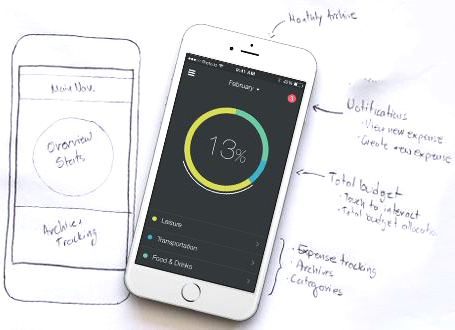 Monthly Archive
Main Nav.
Overview
Stats
Archives
Tracking
9:41 AM
February
3
13%
Leisure
Transportation
Food & Drinks
Notifications
· View new expense
· Create new expense
Total budget
· Touch to interact
· Total budget
· Expense tracking
· Archives
· Categories